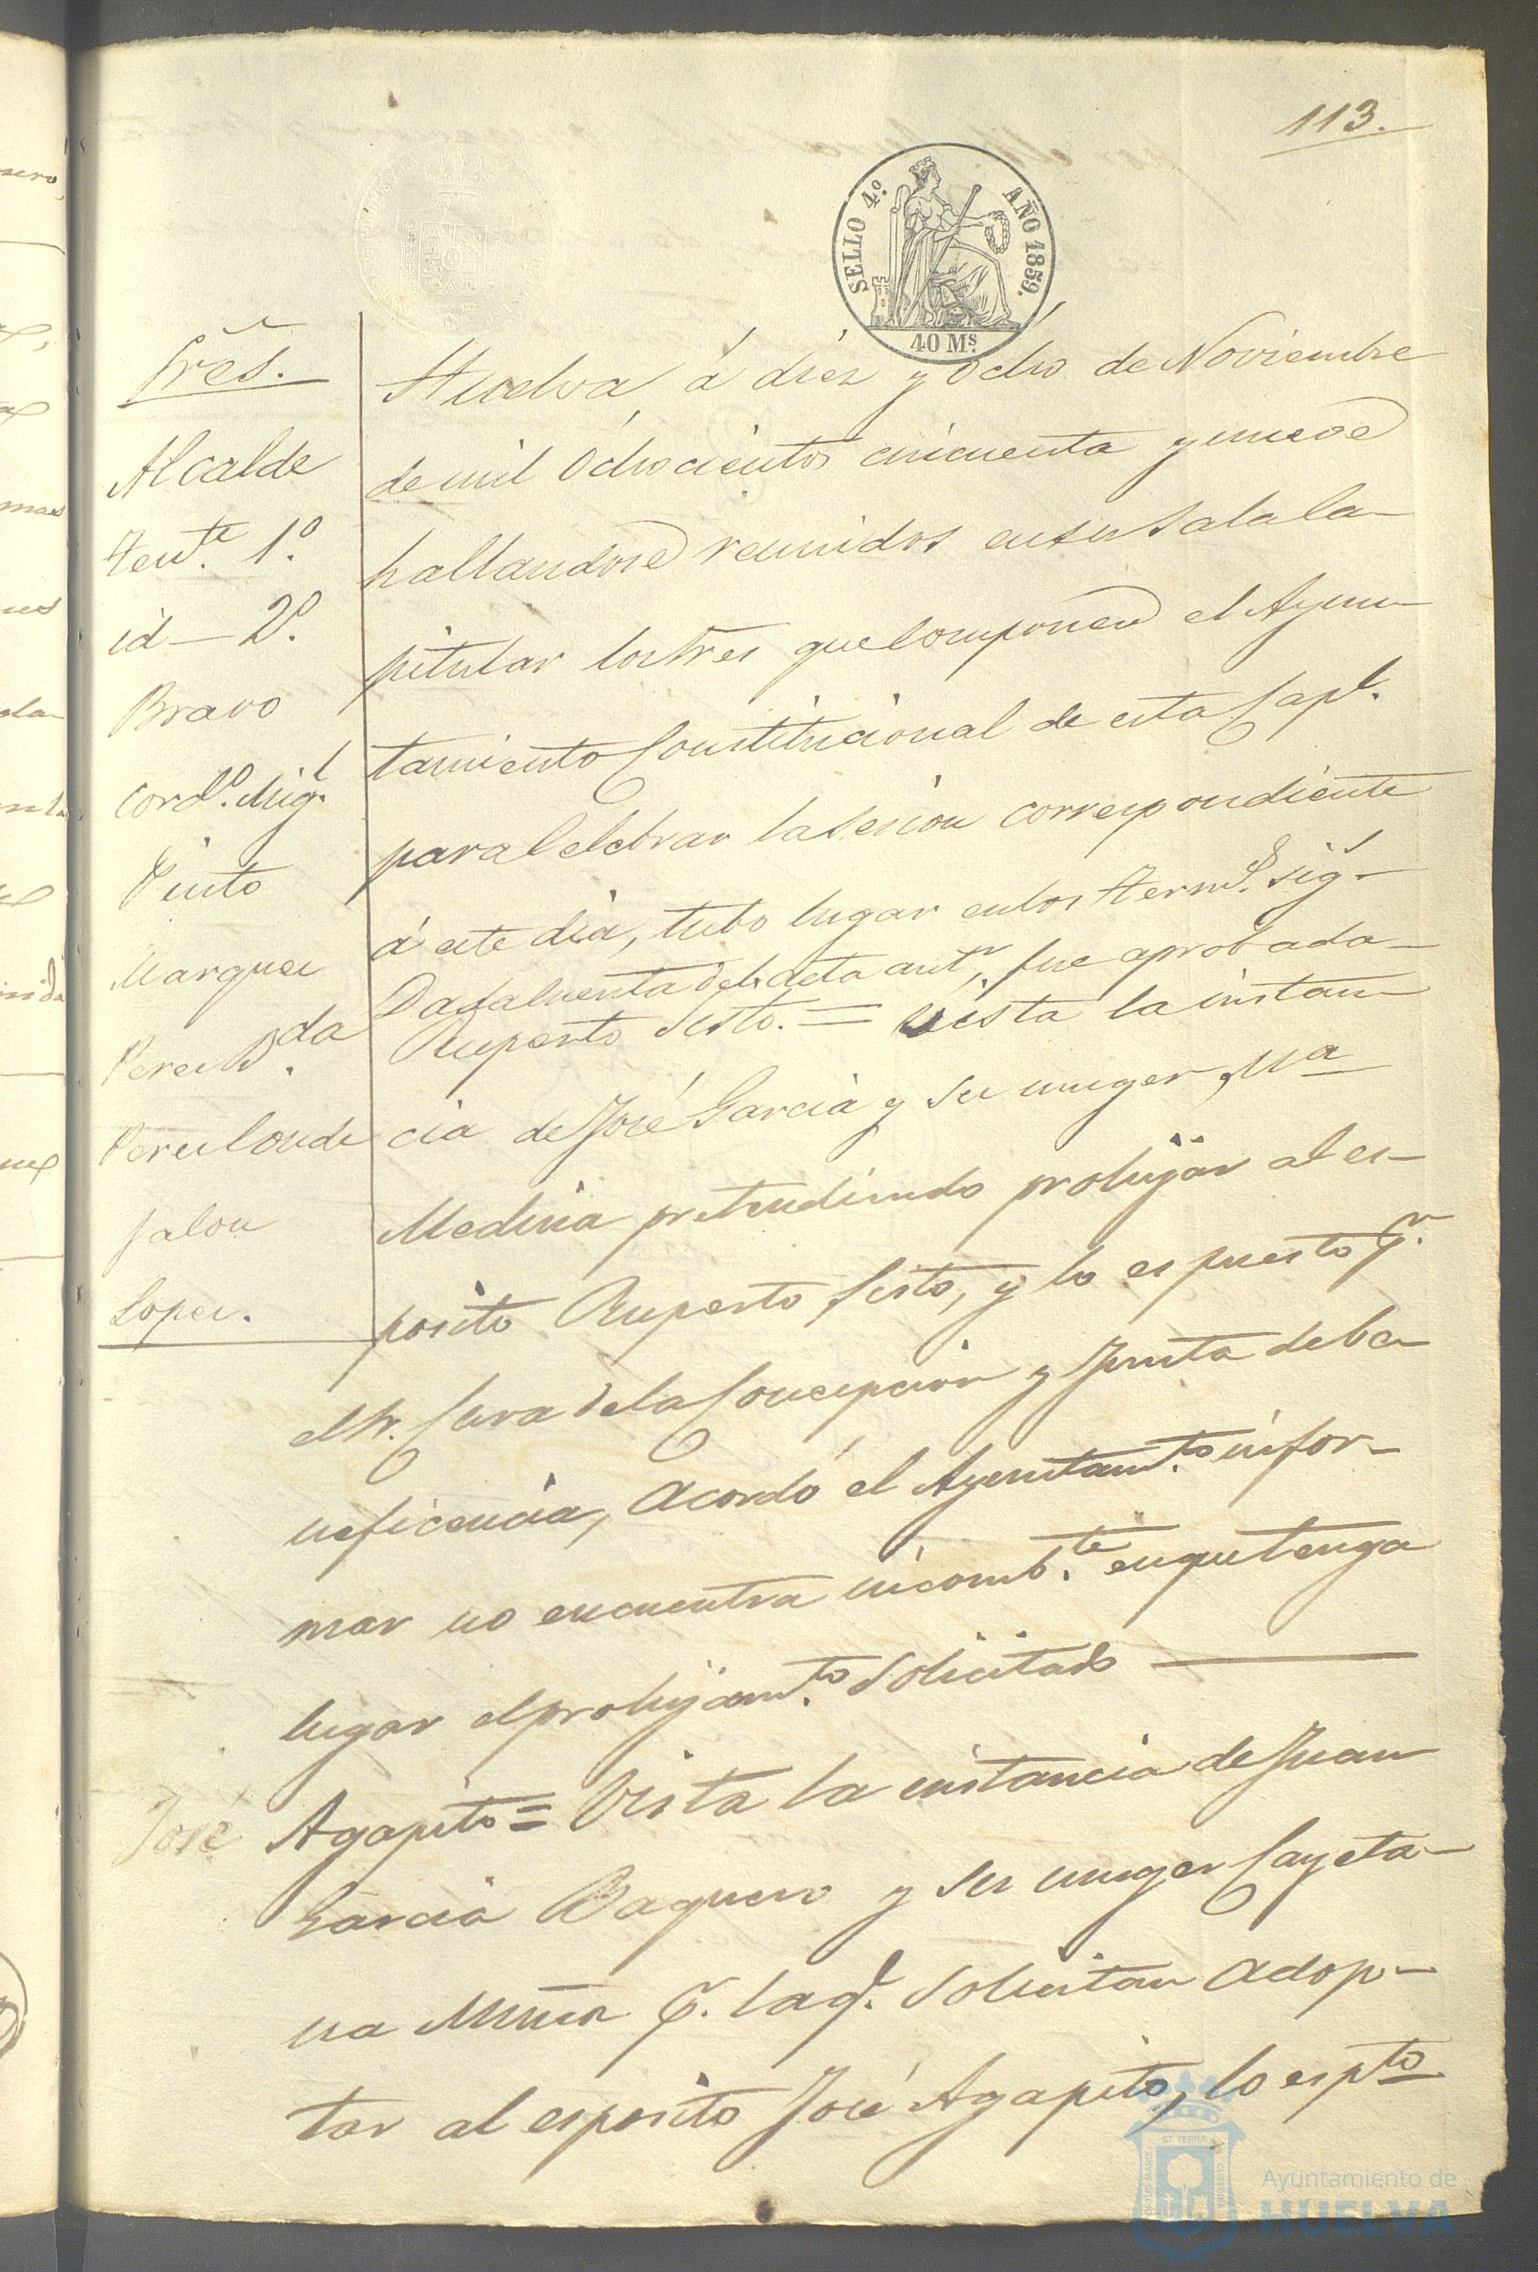 113.
SELLO 4º AÑO 1859.
40 Ms.
Sres.
Alcalde
Tente. 1º.
id — 2º.
Bravo
Cordº. Migl.
Pinto
Marquez
Perez
Perez Conde
Jalon
Lopez.
Huelva á diez y Ocho de Noviembre
de mil Ochocientos cincuenta y nueve
hallandose reunidos en su Sala Ca-
pitular los Sres que Componen el Ayun-
tamiento Constitucional de esta Capl.
para Celebrar la Sesion correspondiente
á este dia, tubo lugar en los term.s sig.
Dada Cuenta del acta antr. fue aprobada—
Ruperto Sisto. = Vista la instan-
cia de José Garcia y su muger Mª
Medina pretendiendo prohijar al es-
posito Ruperto Sisto, y lo espuesto pr.
el Sr. Cura de la Concepcion y Junta de be-
neficencia, Acordó el Ayuntamto. infor-
mar no encuentra incombte. en que tenga
lugar el prohijamto. Solicitado
José Agapito = Vista la instancia de Juan
Garcia Baquero y su muger Cayeta-
na Muñoz pr. la ql. Solicitan adop-
tar al esposito José Agapito, lo espto
ET TERRÆ
Ayuntamiento de
HUELVA